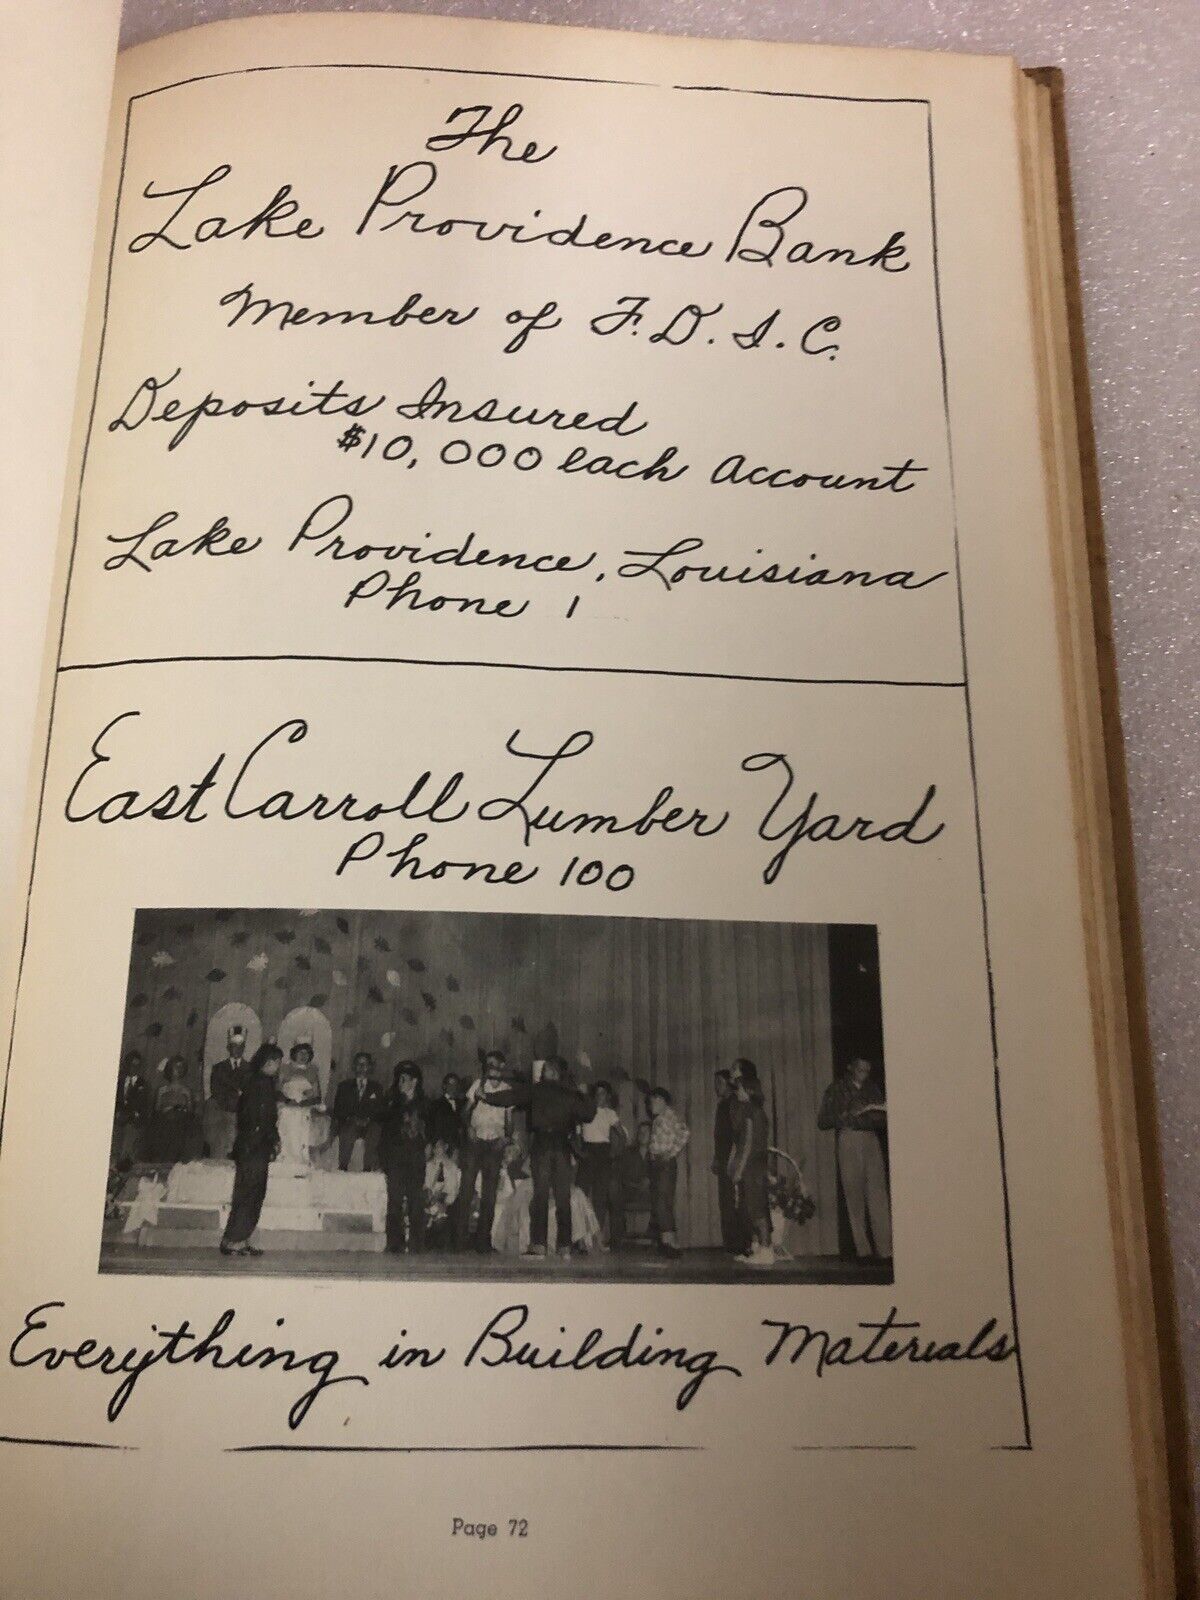 The
Lake Providence Bank
Member of F.D.I.C.
Deposits Insured
$10,000 each Account
Lake Providence, Louisiana
Phone 1
East Carroll Lumber Yard
Phone 100
Everything in Building Materials
Page 72